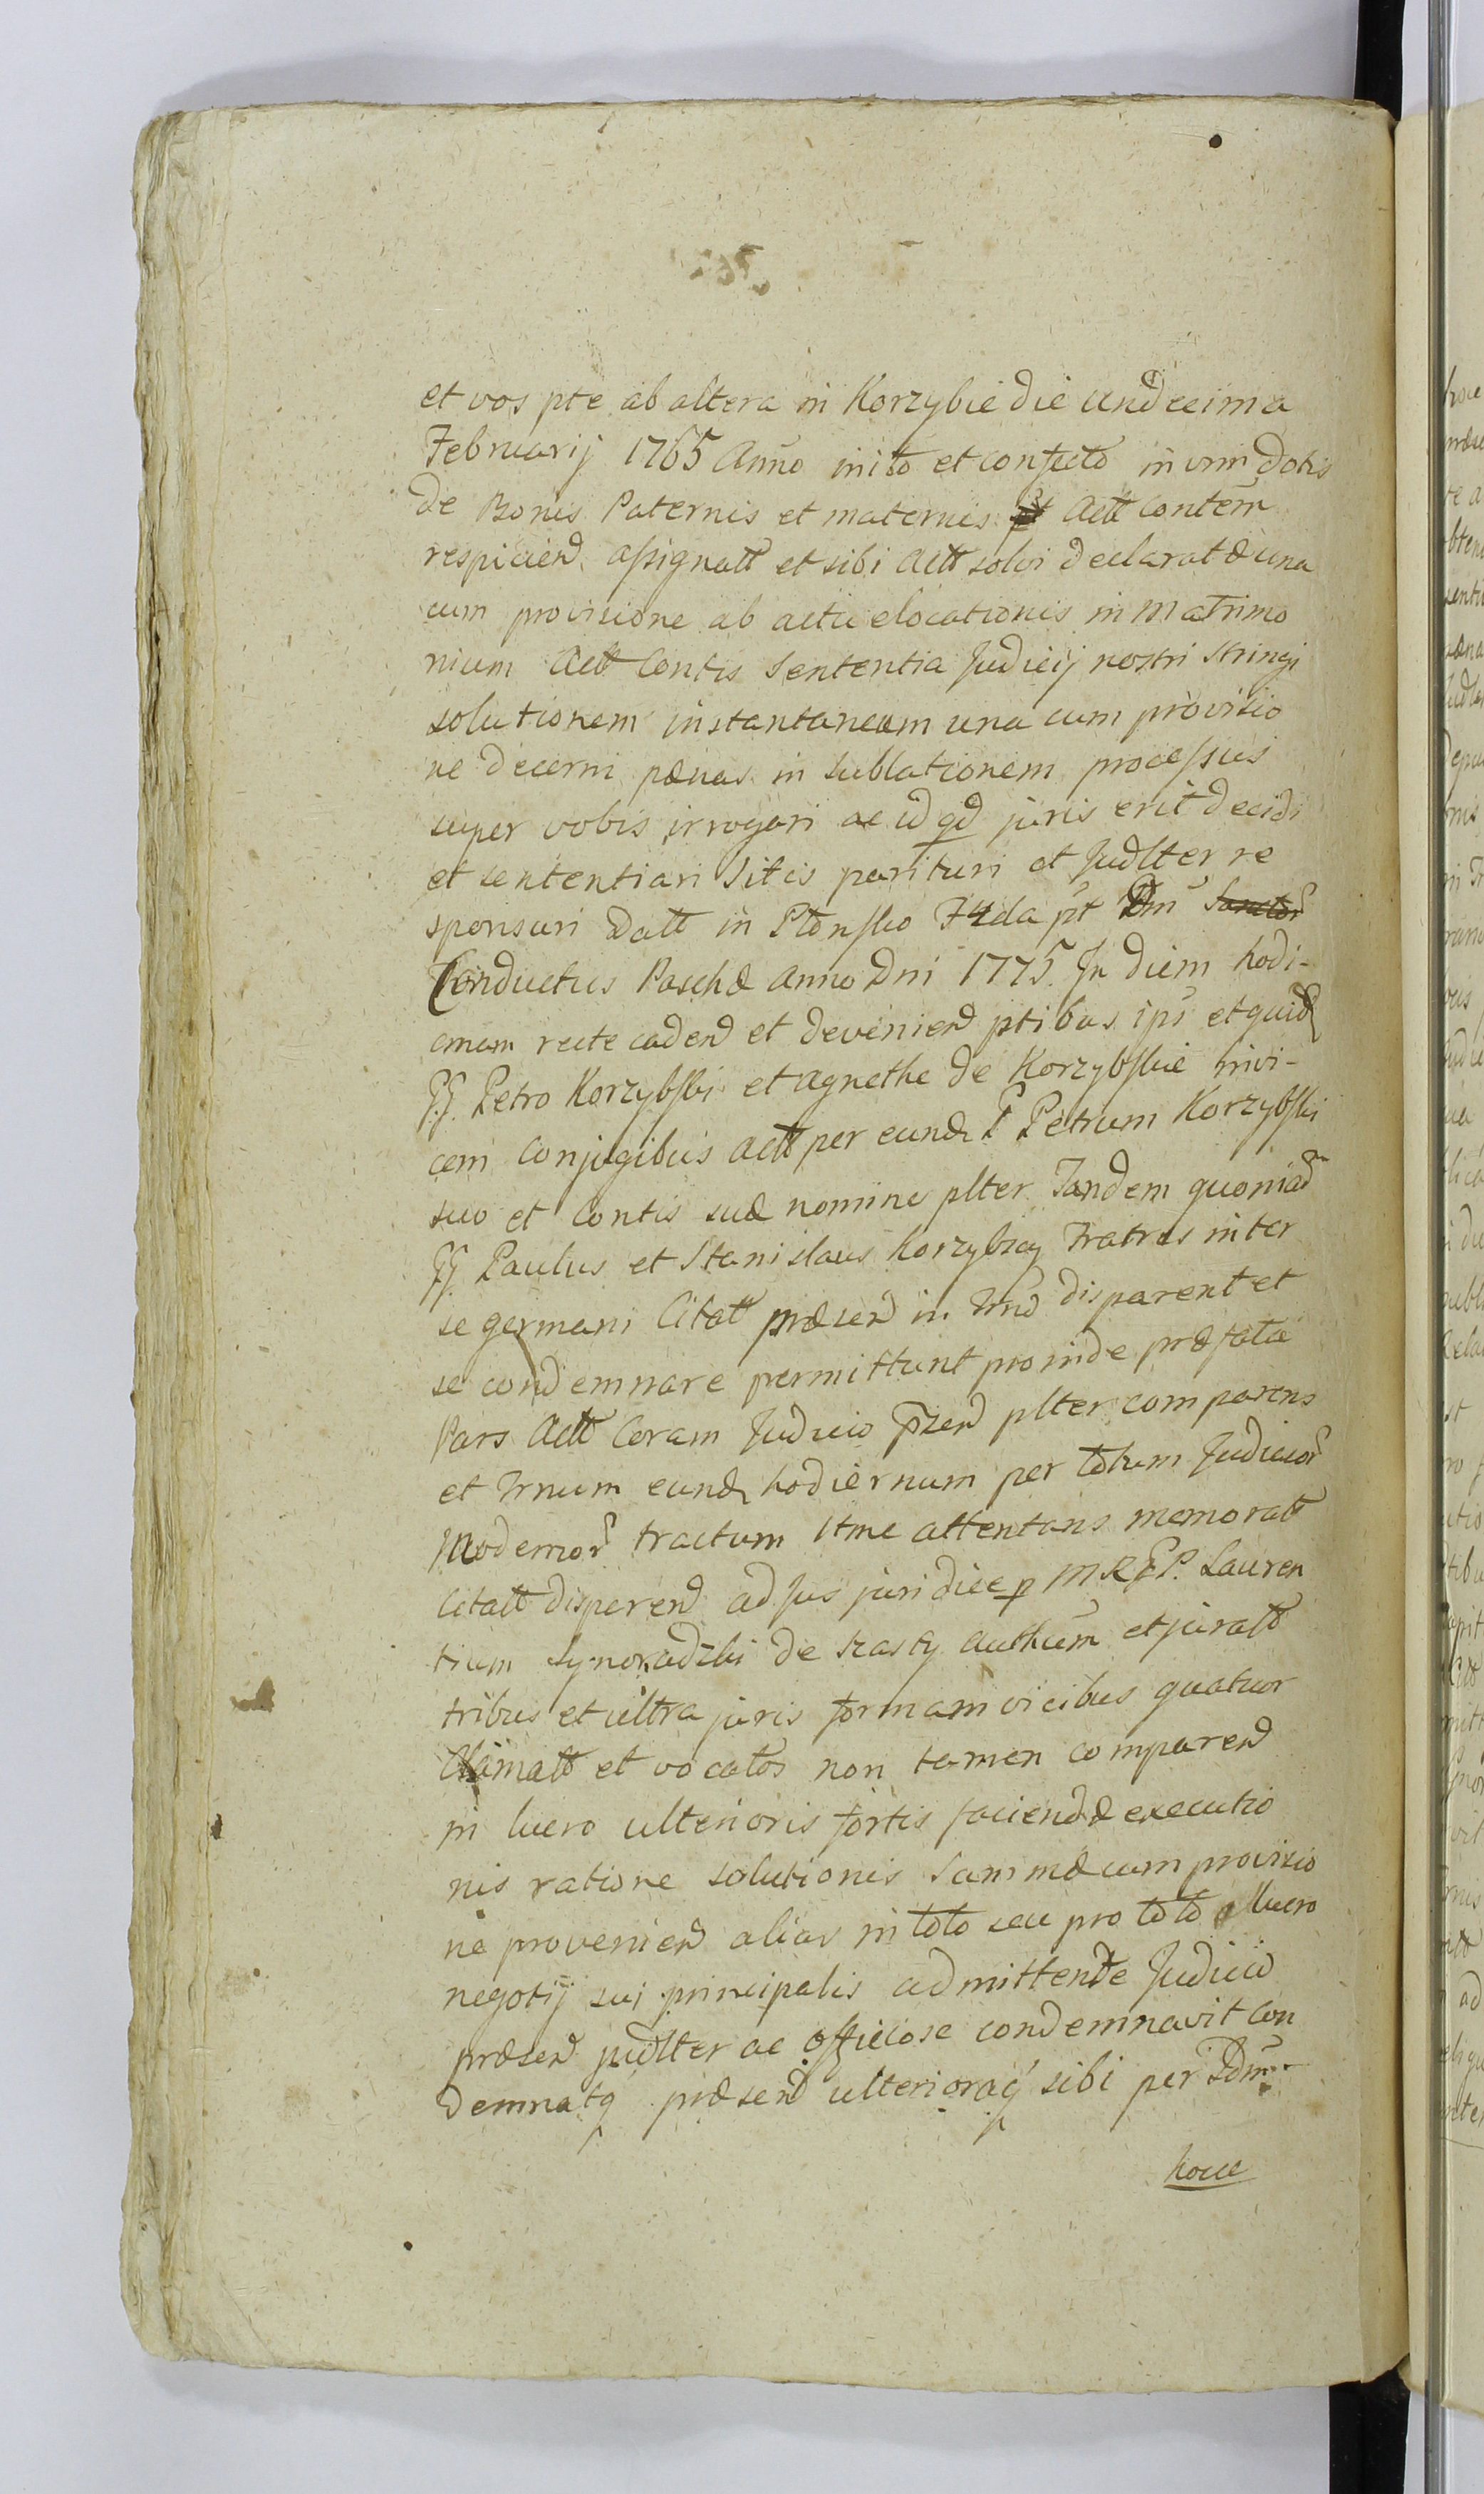 et vos pte ab altera in Korzybie die undecima
Februarij 1765 Anno inito et confecto in vim dotis
de Bonis Paternis et maternis Actt contem
respiciend assignatt et sibi Actt solvi declaratæ una
cum provisione ab actu elocationis in Matrimo
nium Actt Contis Sententia Judicij nostri stringi
solutionem instantaneam una cum provisio
ne decerni pænas in sublationem processus
super vobis irrogari ac id qd juris erit decidi
et sententiari Sitis parituri et Judlter re
sponsuri Datt in Płonsko Fda pt Dni Sanctor
Conductus Paschæ Anno Dni 1775 In diem hodi-
ernam recte cadend et deveniend ptibus ips et quid
PP. Petro Korzybski et Agnethe de Korzybskie invi-
cem Conjugibus Actt per eund P Petrum Korzybski
suo et Contis suæ nomine plter Tandem quoniad
PP. Paulus et Stanislaus Korzybscy Fratres inter
se germani Citatt præsend in Trno disparent et
se condemnare permittunt proinde præfata
Pars Actt Coram Judicio przend plter comparens
et Trnum eund hodiernum per totum Judicior
Modernor tractum ltme attentans memoratt
Citatt disparend ad Jus juridice p MRPP. Lauren
tium Synoradzki de szasty authum et juratt
tribus et ultra juris formam vicibus quatuor
Clamatt et vocatos non tamen comparend
in lucro ulterioris fortis faciendæ executio
nis ratione solutionis Summæ cum provisio
ne proveniend alias in toto seu pro toto lucro
negotij sui principalis admittente Judicio
præsend judlter ac officiose condemnavit Con
demnatq præsend ulterioraq sibi per Dm
hocce